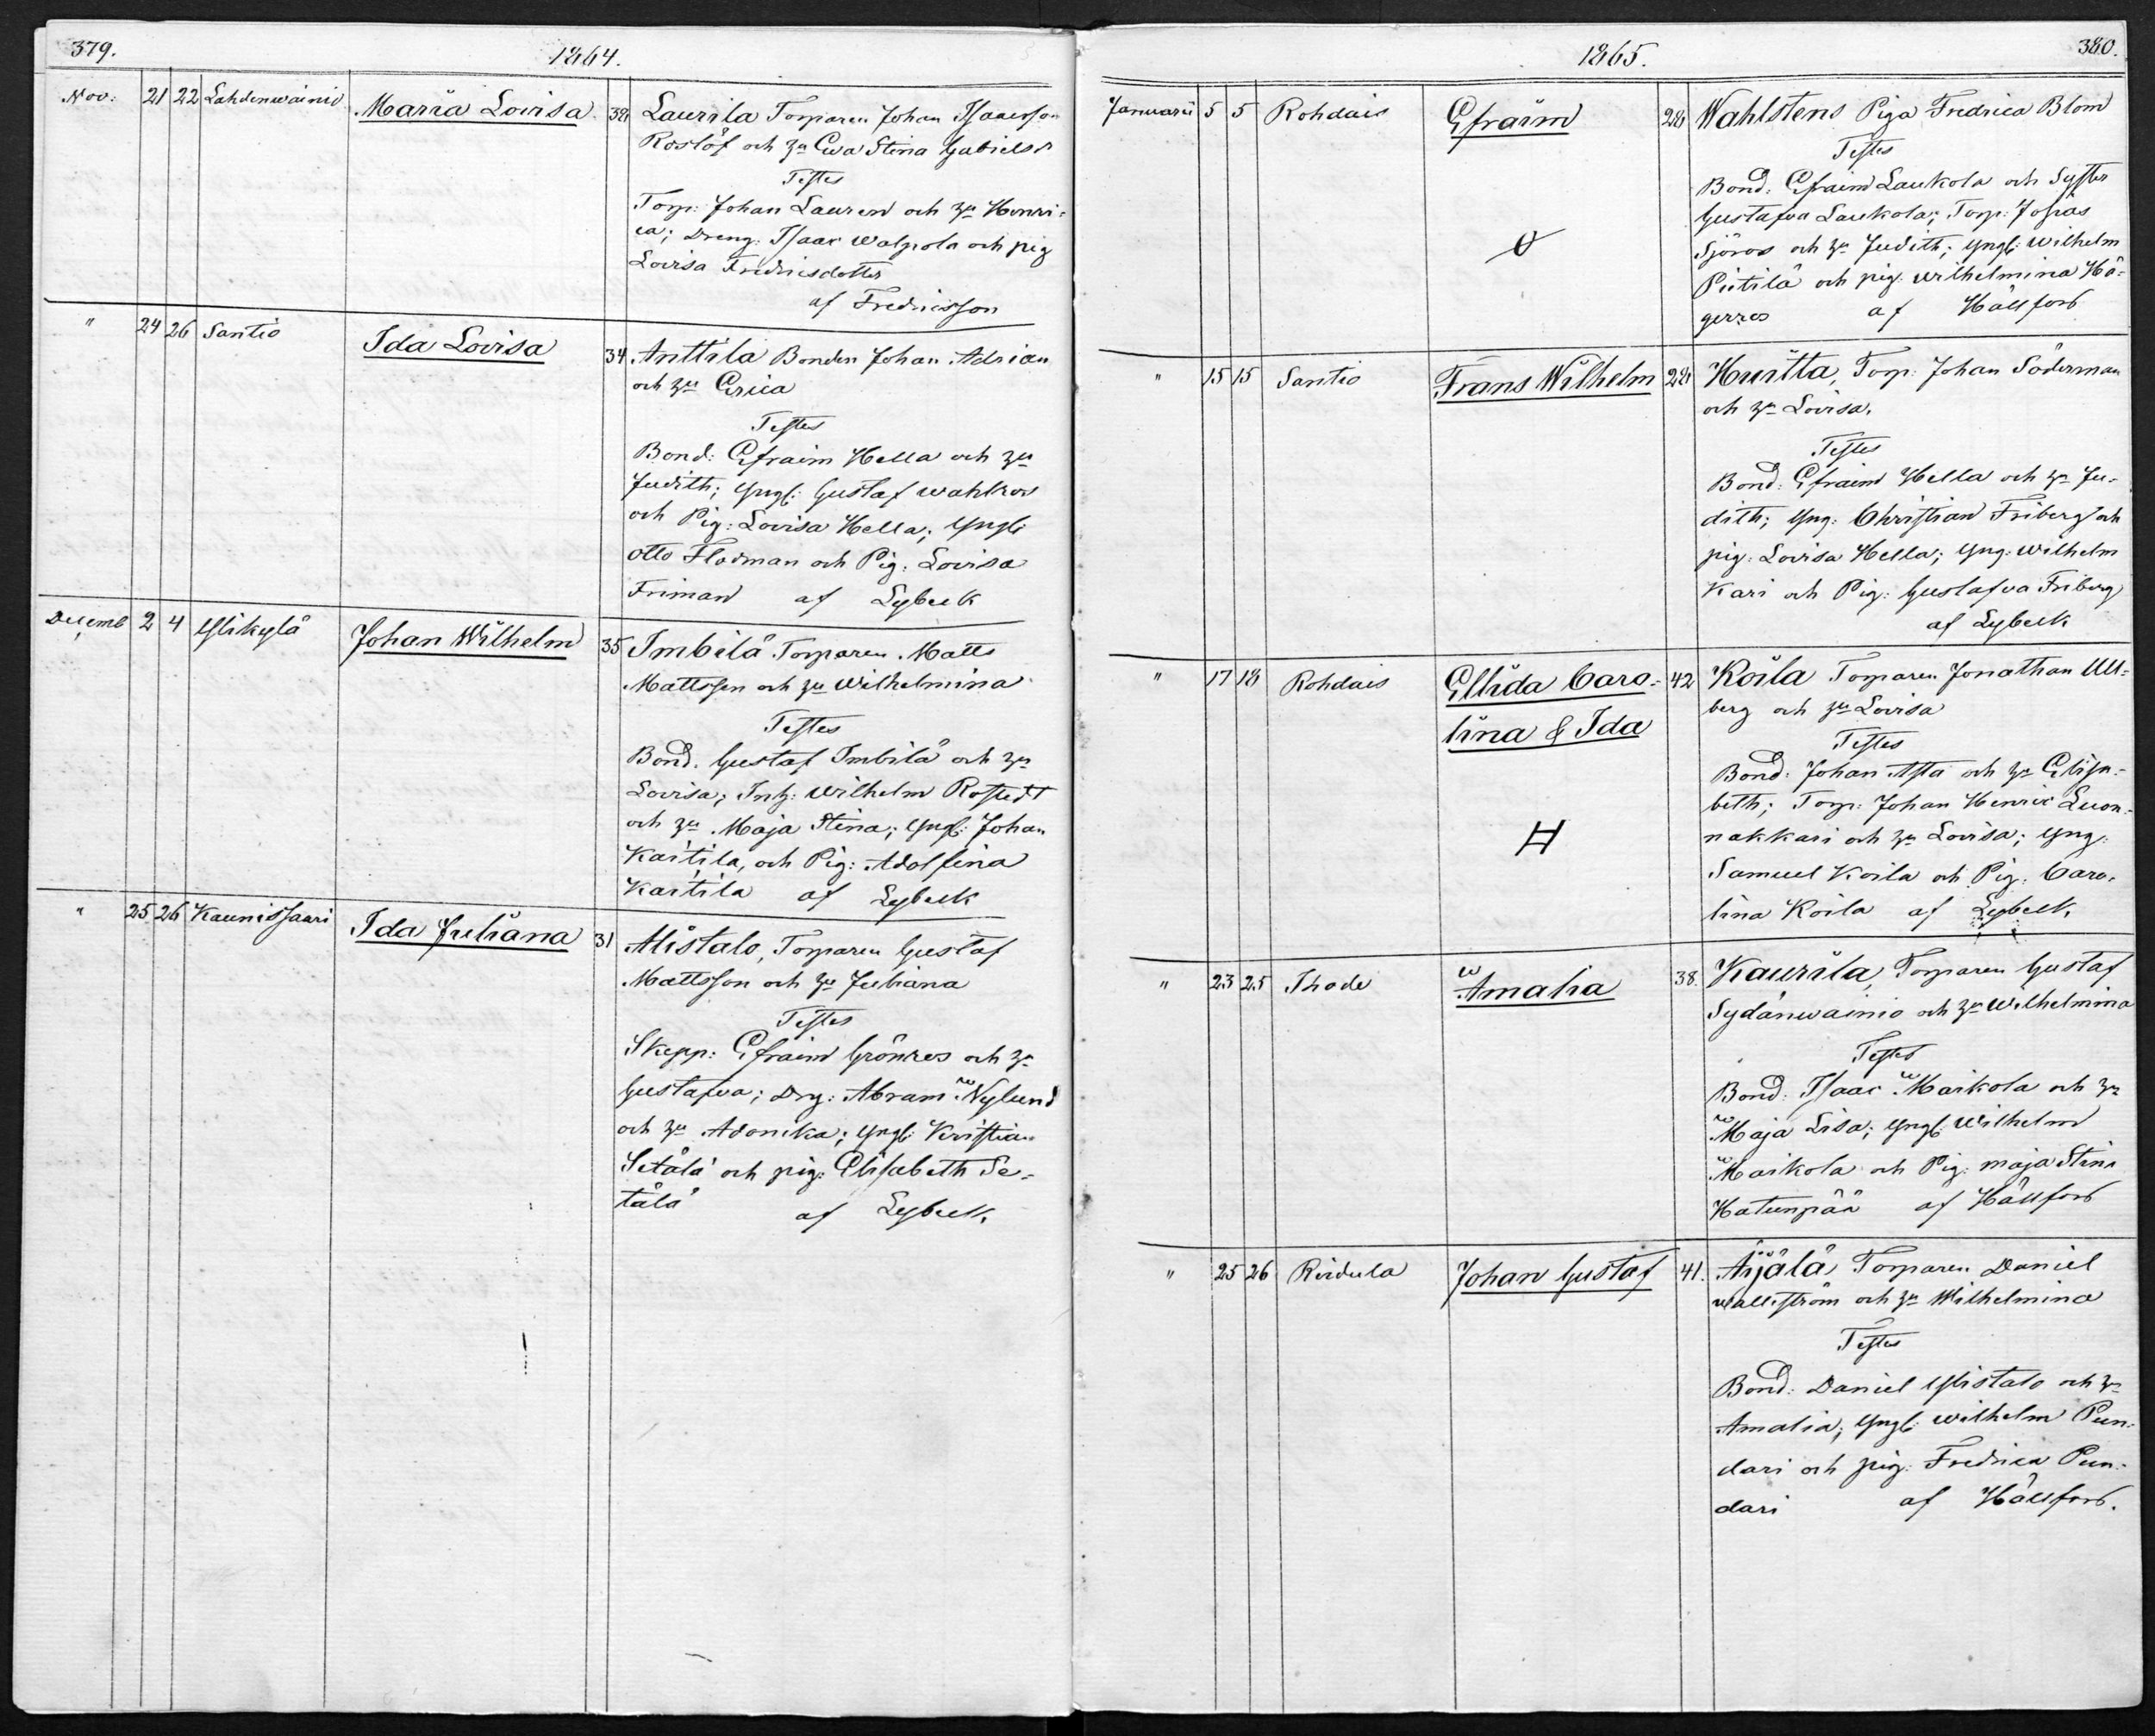 379.
1864.
Nov. 21 22 Lahdenwainio Maria Lovisa. 38 Laurila Torparen Johan Isaacsson
Roslöf och hu Ewa Stina Gabrielsd
Testes
Torp: Johan Lauren och hu Henri=
ca; Dreng: Isaac Walpola och pig
Lovisa Fredricsdotter
af Fredricsson
" 24 26 Santio Ida Lovisa 34 Anttila Bonden Johan Adrian
och hu Erica
Testes
Bond: Efraim Hella och hu
Judith; Yngl: Gustaf Wahlros
och Pig: Lovisa Hella; Yngl:
Otto Flodman och Pig: Lovisa
Friman af Lybeck
Decemb 2 4 Ylikylä Johan Wilhelm 35 Imbilä Torparen Matts
Mattsson och hu Wilhelmina
Testes
Bond. Gustaf Imbilä och hu
Lovisa; Inh: Wilhelm Rostedt
och hu Maja Stina; Yngl: Johan
Kaitila, och Pig: Adolfina
Kaitila af Lybeck
" 25 26 Kaunissaari Ida Juliana 31 Alistalo, Torparen Gustaf
Mattsson och hu Juliana
Testes
Skepp: Efraim Grönros och hu
Gustafva; Drg: Abram Nylund
och hu Adonika; Yngl: Kristian
Setälä och pig: Elisabeth Se=
tälä af Lybeck
1865.
380.
Januarii 5 5 Rohdais Efraim 28 Wahlstens Piga Fredrica Blom
Testes
Bond: Efraim Laukola och Syster
Gustafva Laukola; Torp: Josias
Sjöros och hu Judith; Yngl: Wilhelm
Piitilä och pig: Wilhelmina Hö=
gerros af Hällfors
" 15 15 Santio Frans Wilhelm 28 Huitta, Torp: Johan Söderman
och hu Lovisa.
Testes
Bond: Efraim Hella och hu Ju=
dith; Yng: Christian Friberg och
pig: Lovisa Hella; Yng: Wilhelm
Kari och Pig: Gustafva Friberg
af Lybeck
" 17 18 Rohdais Ellida Caro= 42 Koila Torparen Jonathan Ull=
lina & Ida berg och hu Lovisa
Testes
Bond: Johan Asta och hu Elisa=
beth; Torp: Johan Henric Luon=
nakkari och hu Lovisa; Yng:
Samuel Koila och Pig: Caro=
lina Koila af Lybeck
" 23 25 Thode Amalia 38. Kaurila, Torparen Gustaf
Sydänwainio och hu Wilhelmina
Testes
Bond: Isaac Maikola och hu
Maja Lisa; Yngl: Wilhelm
Maikola och Pig: Maja Stina
Hatunpää af Hällfors
" 25 26 Ruidula Johan Gustaf 41. Äijälä Torparen Daniel
Wallström och hu Wilhelmina
Testes
Bond: Daniel Ylistalo och hu
Amalia; Yngl: Wilhelm Pun=
dari och pig: Fredrica Pun=
dari af Hällfors.